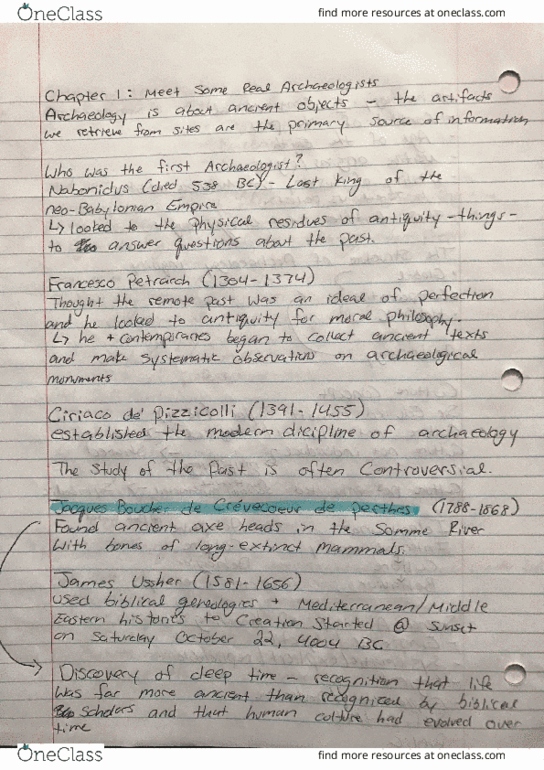 OneClass
find more resources at oneclass.com
Chapter 1: Meet Some Real Archaeologists
Archaeology is about ancient objects - the artifacts
we retrieve from sites are the primary source of information
Who was the first Archaeologist?
Nabonidus (died 538 BC) - Last king of the
neo-Babylonian Empire
↳ looked to the physical residues of antiquity - things -
to answer questions about the past.
Francesco Petrarch (1304-1374)
Thought the remote past was an ideal of perfection
and he looked to antiquity for moral philosophy.
↳ he + contempiranes began to collect ancient texts
and make systematic observations on archaeological
monuments
Ciriaco de' Pizzicolli (1391-1455)
established the modern dicipline of archaeology
The study of the Past is often Controversial.
Jacques Boucher de Crévecoeur de perthes (1788-1868)
Found ancient axe heads in the Somme River
with bones of long-extinct mammals.
James Ussher (1581-1656)
used biblical geneologies + Mediterranean/Middle
Eastern histories to Creation Started @ Sunset
on Saturday October 22, 4004 BC
Discovery of deep time - recognition that life
was far more ancient than recognized by biblical
scholars and that human culture had evolved over
time
OneClass
find more resources at oneclass.com